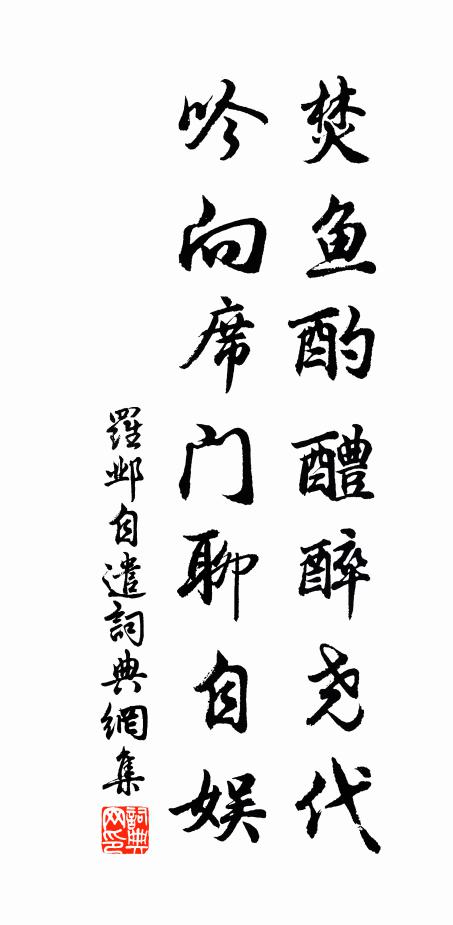 焚鱼酌醴醉尧代
吟向席门聊自娱
羅邺自遣詞典網集
詞典网印